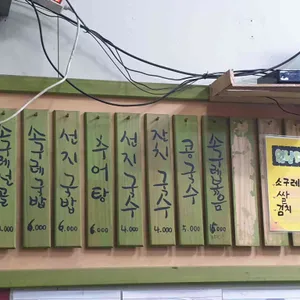 소구레전골
.000
소구레국밥
6.000
선지국밥
6.000
추어탕
6.000
선지국수
4.000
잔치국수
4.000
콩국수
5.000
소구레볶음
소구레
쌀
김치